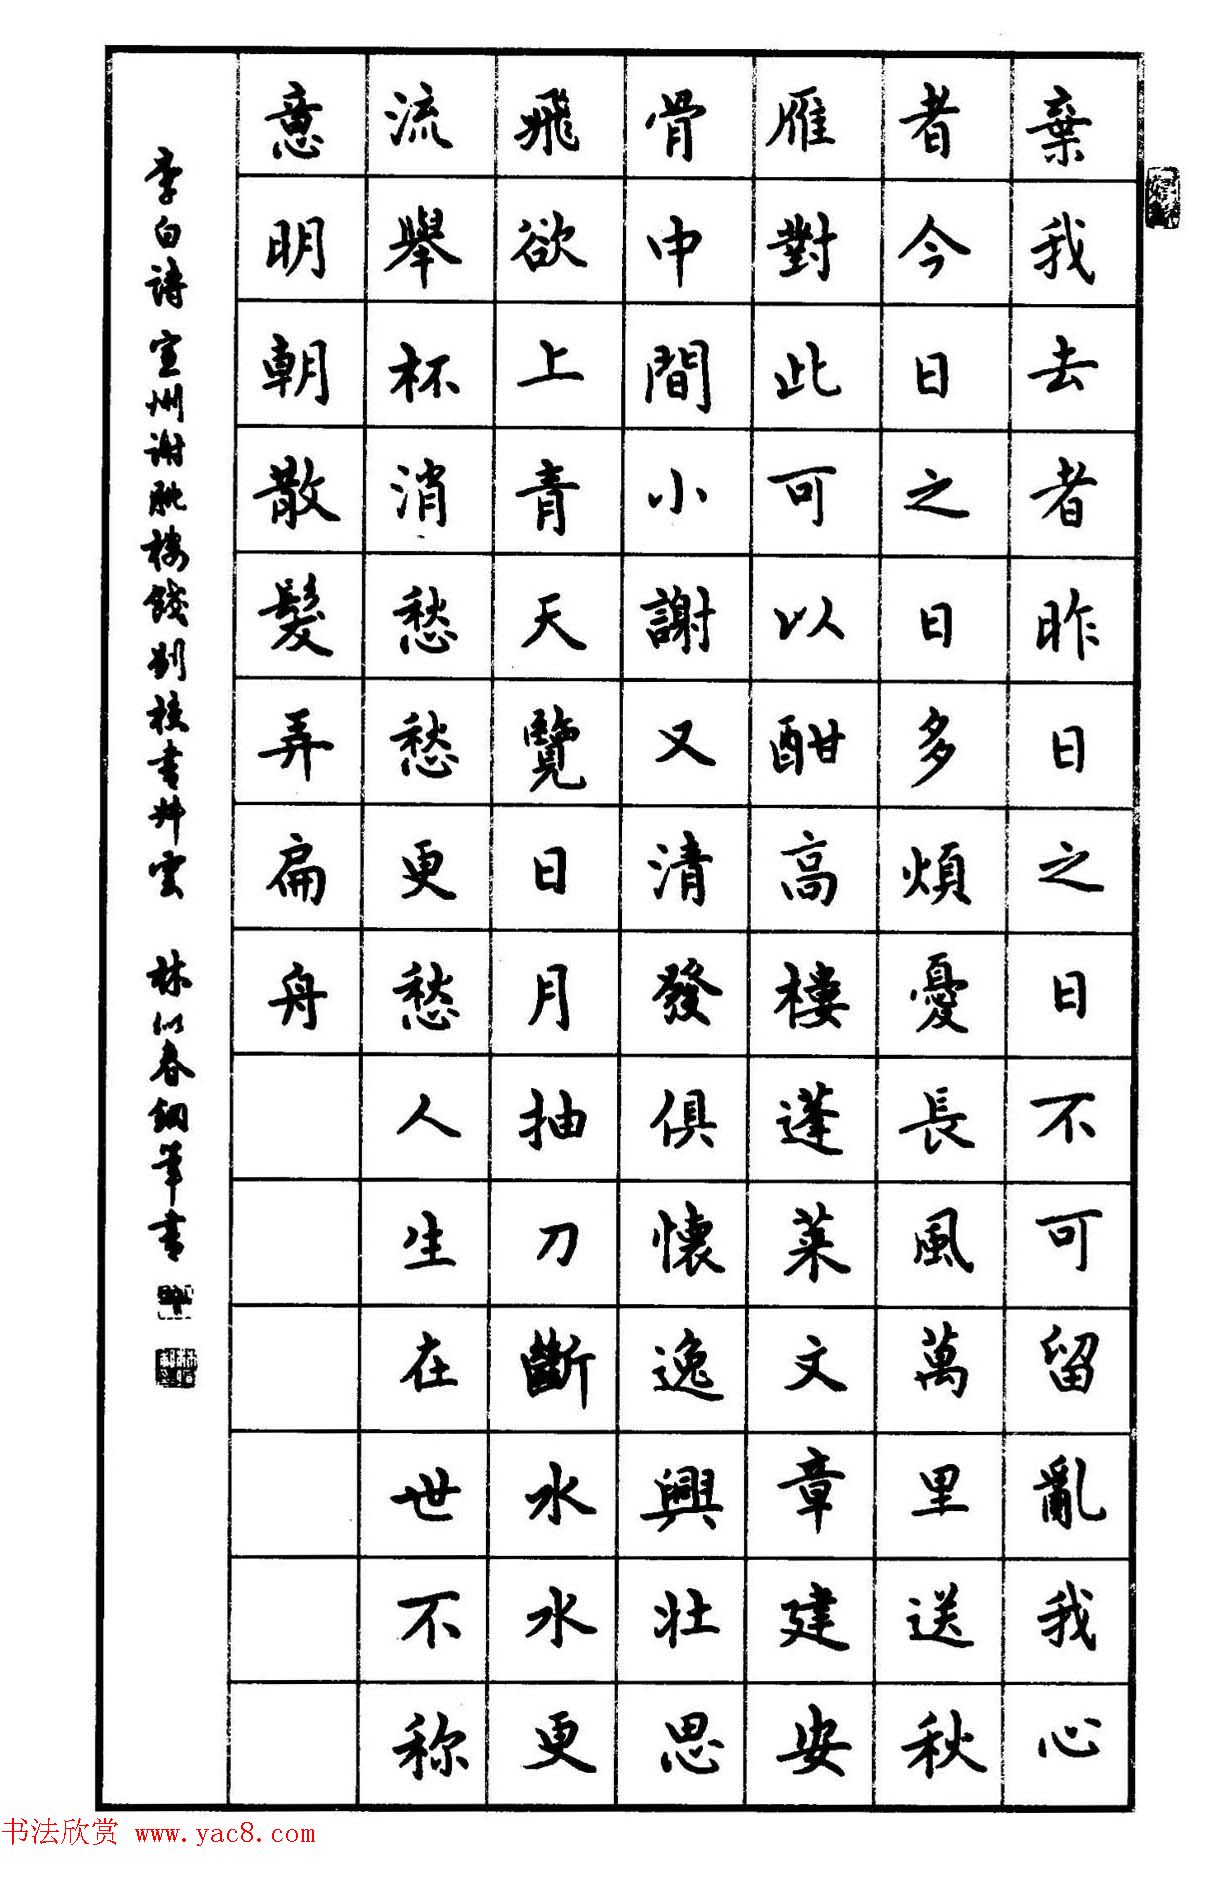 棄我去者昨日之日不可留亂我心
者今日之日多煩憂長風萬里送秋
雁對此可以酣高樓蓬萊文章建安
骨中間小謝又清發俱懷逸興壯思
飛欲上青天覽日月抽刀斷水水更
流舉杯消愁愁更愁人生在世不称
意明朝散髮弄扁舟
李白詩宣州謝朓樓餞别校書叔雲 林似春鋼筆書
书法欣赏 www.yac8.com